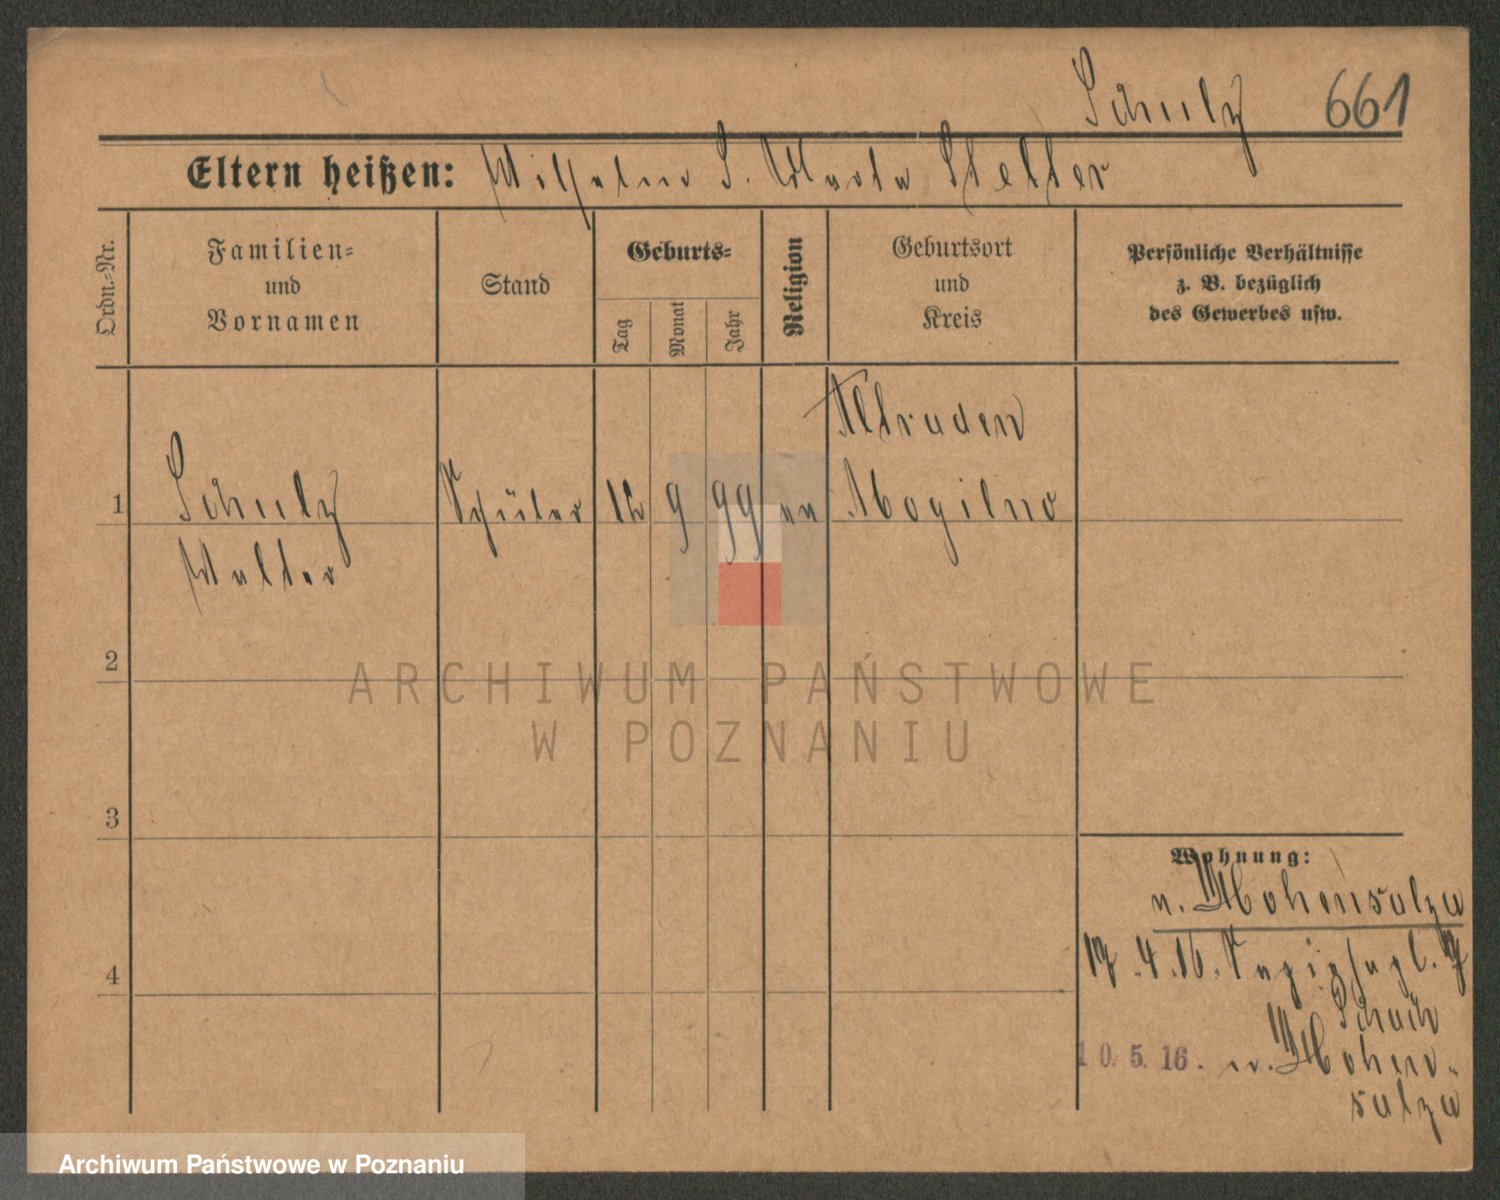 Schulz 661
Eltern heißen: Wilhelm S. Marta Stelter
Ordn.-Nr.
Familien-
und
Vornamen
Stand
Geburts-
Tag
Monat
Jahr
Religion
Geburtsort
und
Kreis
Persönliche Verhältnisse
z. B. bezüglich
des Gewerbes usw.
Altraden
1 Schulz Schüler 12 9 99 ev Mogilno
Walter
2
3
4
Wohnung:
n. Hohensalza
17.4.16.
Schuch
10.5.16. n. Hohen-
salza
ARCHIWUM PAŃSTWOWE
W POZNANIU
Archiwum Państwowe w Poznaniu